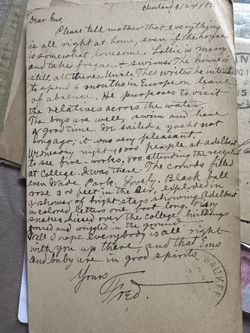 Cleveland 6/24/92
Dear Gus,
Please tell mother that everything
is all right at home, even if the house
is somewhat lonesome. Lollie is merry
and takes frequent swims. The house is
still all there. Uncle Theo writes he intends
to spend 6 months in Europe on leave
of absence. He proposes to visit
the relatives across the water.
The boys are well, swim and have
a good time. We sailed a yacht not
long ago, it was very pleasant.
Wednesday night, people at Adelbert
to see fire-works, 500 attending the reception
at College. I was there. The crowd filled
even Wade Park. Lovely. Black ball
rose 300 feet in the air, exploded in
a shower of bright stars showing Adelbert
in colored letters one foot long. Fiery
snakes hung over the college buildings
and in the ground.
Well I hope everybody is all right
with you up there, and that Ems
and baby are in good spirits.
Yours
Fred.